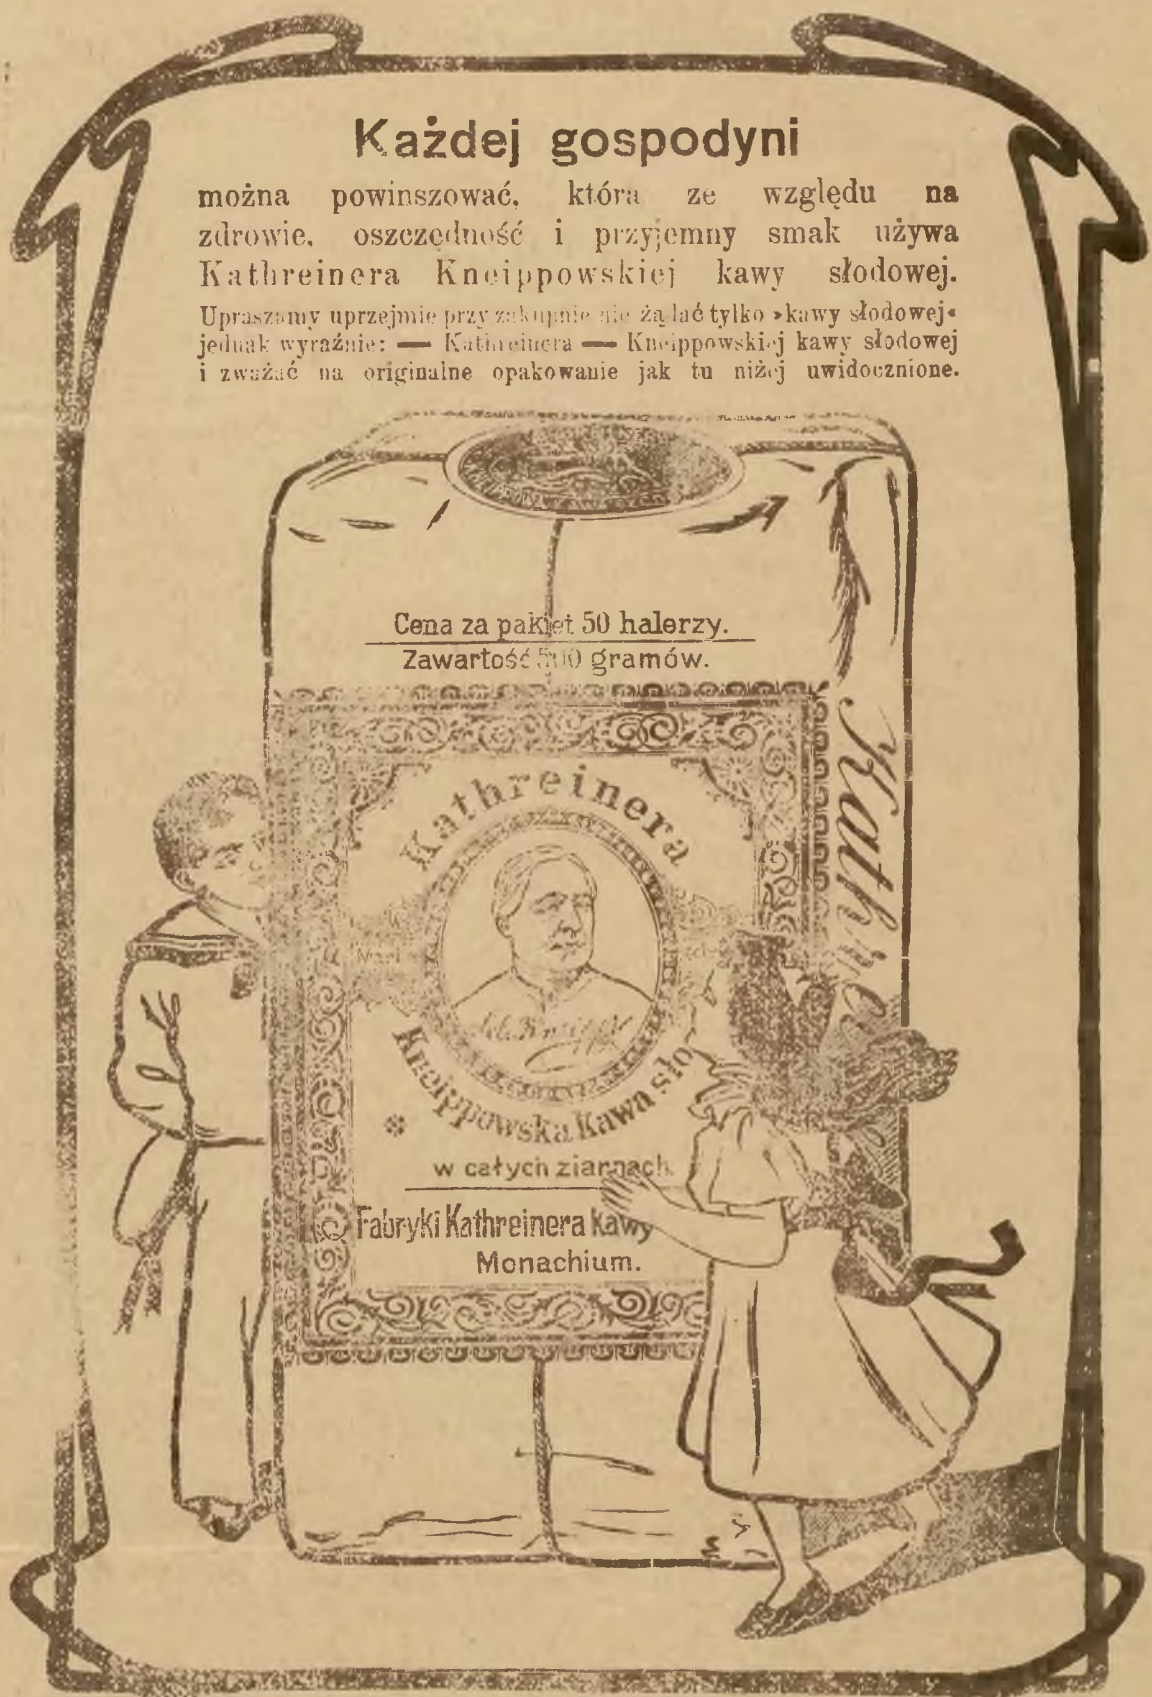 Każdej gospodyni
można powinszować, która ze względu na
zdrowie, oszczędność i przyjemny smak używa
Kathreinera Kneippowskiej kawy słodowej.
Upraszamy uprzejmie przy zakupnie nie żądać tylko »kawy słodowej«
jednak wyraźnie: — Kathreinera — Kneippowskiej kawy słodowej
i zważać na originalne opakowanie jak tu niżej uwidocznione.
Cena za pakiet 50 halerzy.
Zawartość 500 gramów.
Kathreinera
Kathrei
Kneippowska Kawa sło
w całych ziarnach.
Fabryki Kathreinera kawy
Monachium.